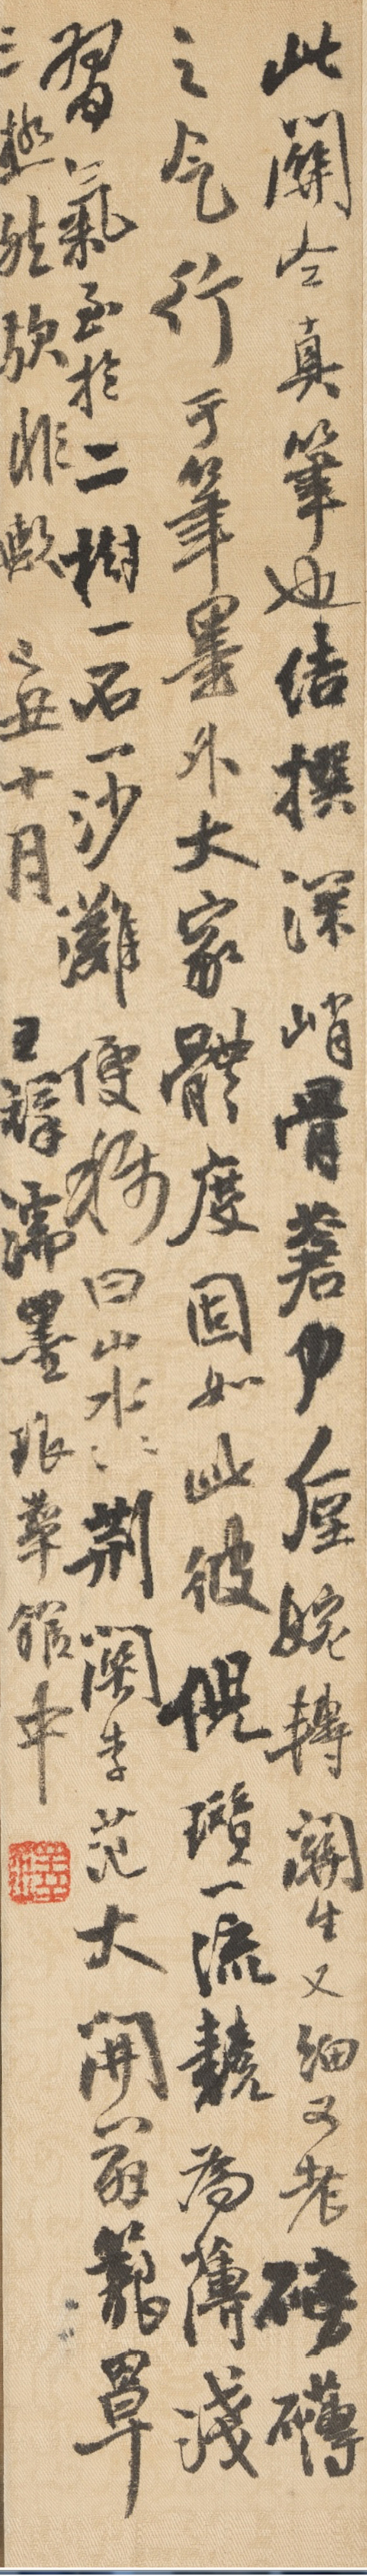 此關仝真筆也結撰深峭骨蒼力厚婉轉關生又細又老磅礡
之气行于筆墨外大家體度固如此彼倪瓚一流競為薄淺
習氣至於二樹一石一沙灘便稱曰山水山水荆關李范大開籠罩
三極然歟非歟 己丑十月 王鐸濡墨琅華館中